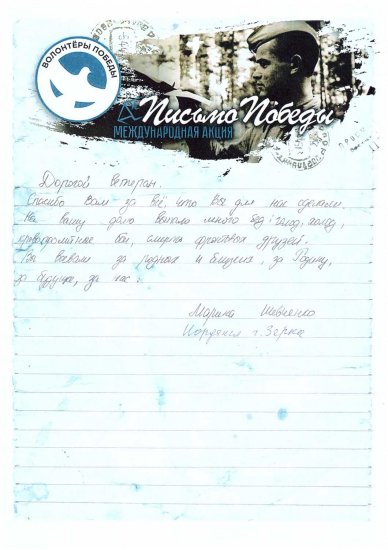 ВОЛОНТЁРЫ ПОБЕДЫ
Письмо Победы
МЕЖДУНАРОДНАЯ АКЦИЯ
Дорогой ветеран.
Спасибо Вам за всё, что Вы для нас сделали.
На вашу долю выпало много бед: голод, холод,
кровопролитные бои, смерть фронтовых друзей.
Вы воевали за родных и близких, за Родину,
за будущее, за нас.
Марина Шевченко
Иордания г. Зерка